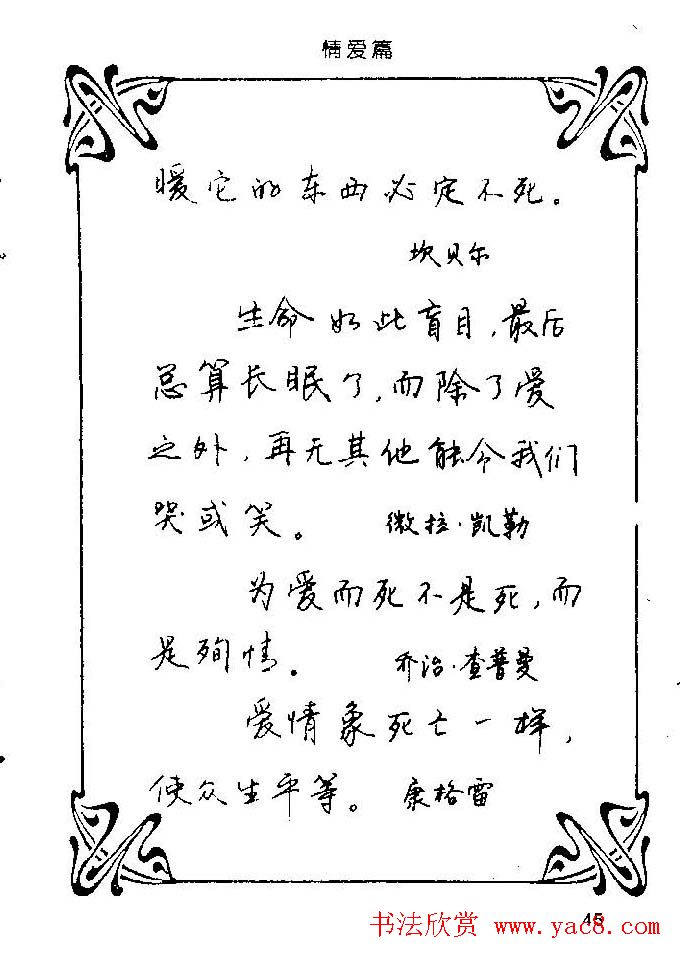 情爱篇
暖它的东西必定不死。
坎贝尔
生命如此盲目，最后
总算长眠了，而除了爱
之外，再无其他能令我们
哭或笑。 微拉·凯勒
为爱而死不是死，而
是殉情。 乔治·查普曼
爱情象死亡一样，
使众生平等。 康格雷
45
书法欣赏 www.yac8.com